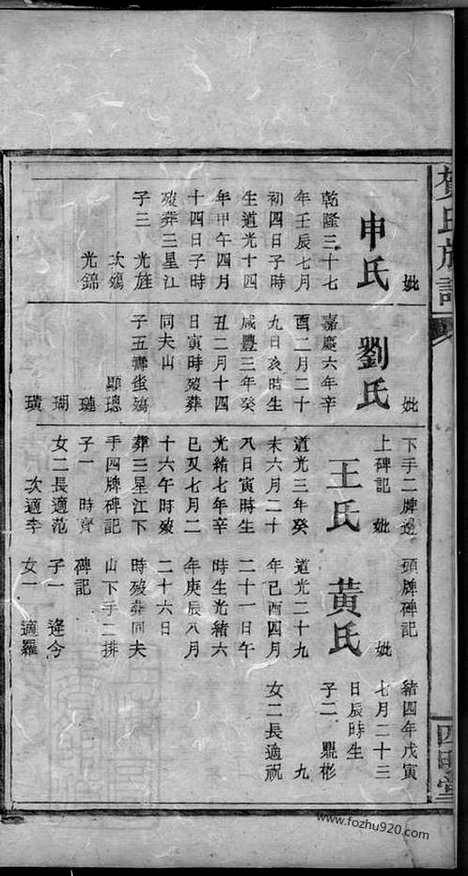 賀氏族譜
四明堂
妣
申氏
乾隆三十七
年壬辰七月
初四日子時
生道光十四
年甲午四月
十四日子時
殁葬三星江
子三 光旌
次鴻
光錦
妣
劉氏
嘉慶六年辛
酉二月二十
九日亥時生
咸豐三年癸
丑二月十四
日寅時殁葬
同夫山
子五壽蚩鴻
顯璁
璉
瑚
璜
下手二牌邊
上碑記 妣
王氏
道光三年癸
未六月二十
八日寅時生
光緒七年辛
巳又七月二
十六午時殁
葬三星江下
手四牌碑記
子一 時齊
女二長適范
次適李
頭牌碑記
妣
黃氏
道光二十九
年己酉四月
二十一日午
時生光緒六
年庚辰八月
二十六日
時殁葬同夫
山下手二排
碑記
子一 逢今
女一 適羅
緒四年戊寅
七月二十三
日辰時生
子二 鼎彬
九
女二長適祝
www.fozhu920.com